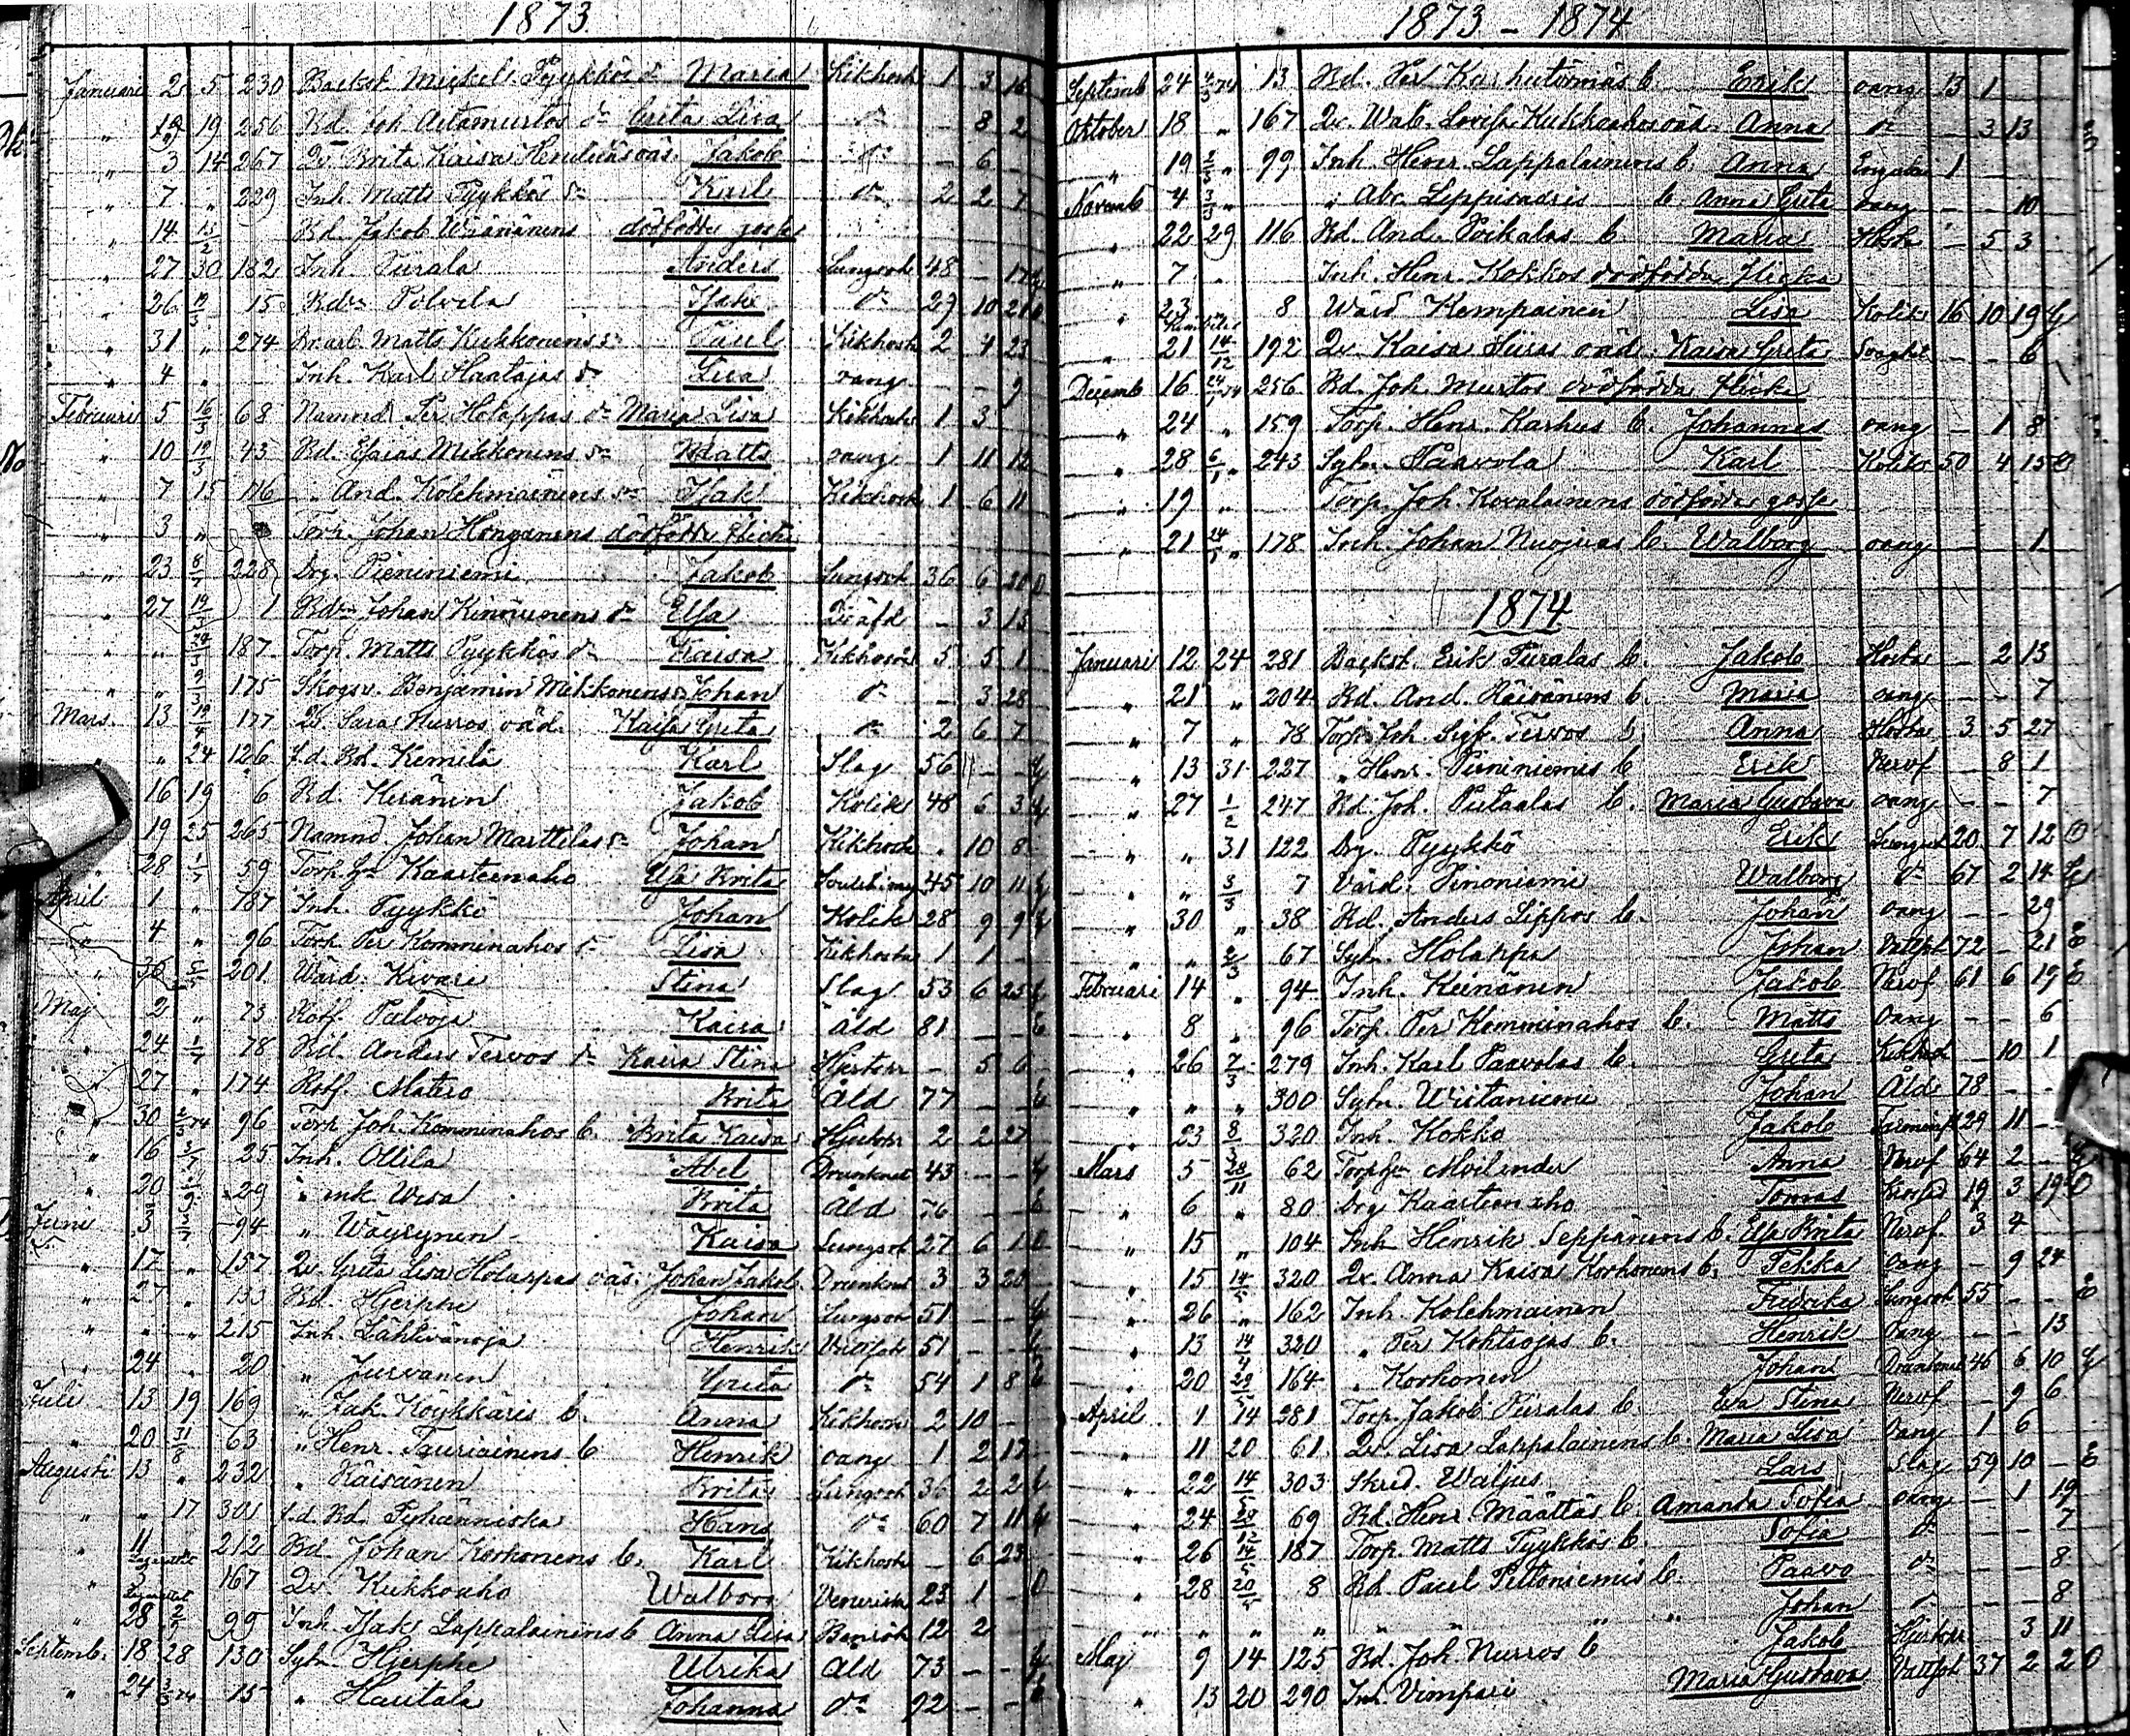 1873.
Januari 2 5 230 Backst. Mickel Pyykkös dr Maria Kikhosta 1 3 16
" 19 19 256 Bd. Joh. Aitamurtos dr Greta Lisa do - 8 2
" 3 14 267 Qv. Brita Kaisa oäs. Jakob do - 6 -
" 7 " 229 Inh. Matts Pyykkös sn Karl do 2 2 7
" 14 13/2 Bd. Jakob Wäänänens dödfödde gosse
" 27 30 182 Inh. Purala Anders Lungsot 48 - 17
" 26 19/3 15 Bdr Polvela Isak do 29 10 21 O
" 31 " 274 Matts Kukkonens sn Paul Kikhosta 2 4 23
" 4 " Inh. Karl Haatajas dr Lisa oang - - 9
Februari 5 16/3 68 Namnd. Per Holappas dr Maria Lisa Kikhosta 1 3
" 10 19/3 43 Bd. Esaias Mikkonens sn Matts oang 1 11 12
" 7 15 116 " And. Kolehmainens sn Isak Kikhosta 1 6 11
" 3 " Torp. Johan Honganens dödfödde flicka
" 23 8/7 228 Drg. Pieniniemi Jakob Lungsot 36 6 20 O
" 27 19/3 1 Bdr Johan Kinnunens dr Elsa - 3 13
" " 187 Torp. Matts Pyykkös dr Kaisa Kikhosta 5 5 1
" " 9/3 175 Skogsv. Benjamin Mikkonens sn Johan do - 3 28
Mars 13 19/4 177 Qv. Sara Kurros oäd. Kaisa Greta do 2 6 7
" 24 126 f.d. Bd. Kemilä Karl Slag 56 - -
16 19 6 Bd. Keränen Jakob Kolik 48 6 3
19 25 265 Namnd. Johan Marttilas sn Johan Kikhosta . 10 8
28 1/7 59 Torp.hu Kaarteenaho Brita 45 10 11
April 1 " 187 Inh. Pyykkö Johan Kolik 28 9 9
" 4 " 96 Torp. Per Komminahos dr Lisa Kikhosta 1 1
" 30 201 Wärd. Kivari Stina Slag 53 6 25
Maj 2 " 73 Rotf. Palvoja Kaisa Åld 81 - -
" 24 1/7 78 Bd. Anders Tervos dr Kaisa Stina - 5 6
" 27 " 174 Rotf. Matero Brita Åld 77 - -
" 30 2/3 74 96 Torp. Joh. Komminahos b. Brita Kaisa 2 2 27
" 16 3/7 25 Inh. Ollila Abel Drunknat 43 - -
" 20 29 " enk. Wesa Brita Åld 76 - -
Juni 3 94 " Wäyrynen Kaisa Lungsot 27 6 1 O
" 17 " 157 Qv. Greta Lisa Holappas oäs. Johan Jakob Drunknat 3 3 28
" 27 " 133 Bd. Hjerpe Johan Lungsot 51 - -
" " " 215 Inh. Lähtevänoja Henrik 51 - -
" 24 " 20 " Jurvanen Greta do 54 1 8
Juli 13 19 169 " Jak. Köykkäris b. Anna Kikhosta 2 10 -
" 20 31/8 63 " Henr. Tauriainens b. Henrik oang 1 2 12
Augusti 13 " 232 " Räisänen Brita Lungsot 36 2 2
" " 17 301 f.d. Bd. Pyhänniska Hans do 60 7 11
" 11 212 Bd. Johan Korhonens b. Karl Kikhosta - 6 23
" 3 167 Qv. Kukkoaho Walborg Venerisk 23 1 - O
" 28 99 Inh. Isak Lappalainens b. Anna Lisa Benröt 12 2
Septemb. 18 28 130 Sytn. Hjerpe Ulrika Åld 73 - -
" 24 3/3 74 15 " Hautala Johanna do 92 - -
1873 - 1874
Septemb 24 4/3 74 13 Bd. Per b. Erik oang 13 1
Oktober 18 " 167 Qv. Walb. Lovisa Kukkoahos oäd. Anna do - 3 13
" 19 2/3 " 99 Inh. Henr. Lappalainens b. Anna 1
Novemb 4 3/3 " " Abr. Leppisaaris b. Anna Greta oang - - 10
" 22 29 116 Bd. And. Poikalas b. Maria Hosta - 5 3
" 7 " Inh. Henr. Kokkos dödfödda flicka
" 23 " 8 Wärd Kemppainen Lisa Kolik 16 10 19
" 21 14/12 192 Qv. Kaisa oäd. Kaisa Greta - - 6
Decemb 16 24/1 74 256 Bd. Joh. Murtos dödfödda flicka
" 24 " 159 Torp. Henr. Karhus b. Johannes oang - 1 8
" 28 6/1 " 243 Sytn. Paavola Karl Kolik 50 4 15
" 19 " Torp. Joh. Kovalainens dödfödde gosse
" 21 24/5 " 178 Inh. Johan Nuojuas b. Walborg oang - - 1
1874
Januari 12 24 281 Backst. Erik Puralas b. Jakob Hosta - 2 13
" 21 " 204 Bd. And. Räisänens b. Maria oang - - 7
" 7 " 78 Torp. Joh. Sigfr. Tervos b. Anna Hosta 3 5 27
" 13 31 227 " Henr. Pieniniemis b. Erik Nervf - 8 1
" 27 1/2 247 Bd. Joh. Putaalas b. Maria Gustava oang - - 7
" " 31 122 Drg. Pyykkö Erik Lungsot 20 7 12 O
" " 3/3 7 Värd. Pinoniemi Walborg do 67 2 14
" 30 " 38 Bd. Anders Lippos b. Johan oang - - 29
" " 2/3 67 Sytn. Holappa Johan 72 - 21
Februari 14 " 94 Inh. Keinänen Jakob Nervf 61 6 19
" 8 " 96 Torp. Per Komminahos b. Matts oang - - 6
" 26 7/3 279 Inh. Karl Paavolas b. Greta Kikhost - 10 1
" " " 300 Sytn. Wiitaniemi Johan Åld 78 - -
" 23 8/3 320 Inh. Kokko Jakob 29 11 -
Mars 5 28/11 62 Torp.hu Moilanen Anna Nervf 64 2 -
" 6 " 80 Drg. Kaarteenaho Tomas 19 3 19 O
" 15 " 104 Inh. Henrik Seppänens b. Elsa Brita Nervf. 3 4
" 15 14/5 320 Qv. Anna Kaisa Korhonens b. Pekka oang - 9 24
" 26 " 162 Inh. Kolehmainen Fredrika Lungsot 55 - -
" 13 14/4 320 " Per Kohtiojas b. Henrik oang - - 13
" 20 164 " Korhonen Johan Drunknat 46 6 10
April 1 14 281 Torp. Jakob Puralas b. Eva Stina Nervf - 9 6
" 11 20 61 Qv. Lisa Lappalainens b. Maria Lisa oang 1 6
" 22 14/5 303 Skred. Waljus Lars Slag 59 10 -
" 24 69 Bd. Henr Määttäs b. Amanda Sofia oang - 1 19
" 26 14/5 187 Torp. Matts Pyykkös b. Sofia do - - 7
" 28 20/5 8 Bd. Paul Peltoniemis b. Paavo do - - 8
" " " " " " Johan do - - 8
Maj 9 14 125 Bd. Joh. Nurros b Jakob 3 11
" 13 20 290 Inh. Vimpari Maria Gustava 37 2 2 O